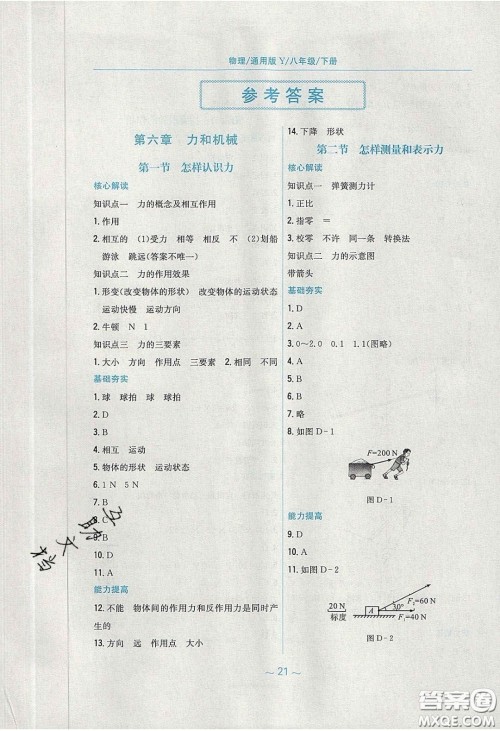 物理/通用版 Y/八年级/下册
参考答案
第六章 力和机械
第一节 怎样认识力
核心解读
知识点一 力的概念及相互作用
1. 作用
2. 相互的 (1)受力 相等 相反 不 (2)划船
游泳 跳远(答案不唯一)
知识点二 力的作用效果
1. 形变(改变物体的形状) 改变物体的运动状态
运动快慢 运动方向
2. 牛顿 N 1
知识点三 力的三要素
1. 大小 方向 作用点 三要素 2. 相同 不同
基础夯实
1. 球 球拍 球 球拍
2. D
3. D
4. 相互 运动
5. 物体的形状 运动状态
6. 1 N 5 N
7. B
8. C
9. B
10. D
11. A
能力提高
12. 不能 物体间的作用力和反作用力是同时产
生的
13. 方向 远 作用点 大小
14. 下降 形状
第二节 怎样测量和表示力
核心解读
知识点一 弹簧测力计
1. 正比
2. 指零 =
3. 校零 不许 同一条 转换法
知识点二 力的示意图
带箭头
基础夯实
1. D
2. A
3. 0～2.0 0.1 1.1(图略)
4. A
5. B
6. D
7. 略
8. 如图 D-1
F=200 N
图 D-1
能力提高
9. A
10. D
11. 如图 D-2
20 N
标度
A
30°
F₁=60 N
F₂=40 N
图 D-2
～ 21 ～
互助文档
答案圈
MXQE.COM